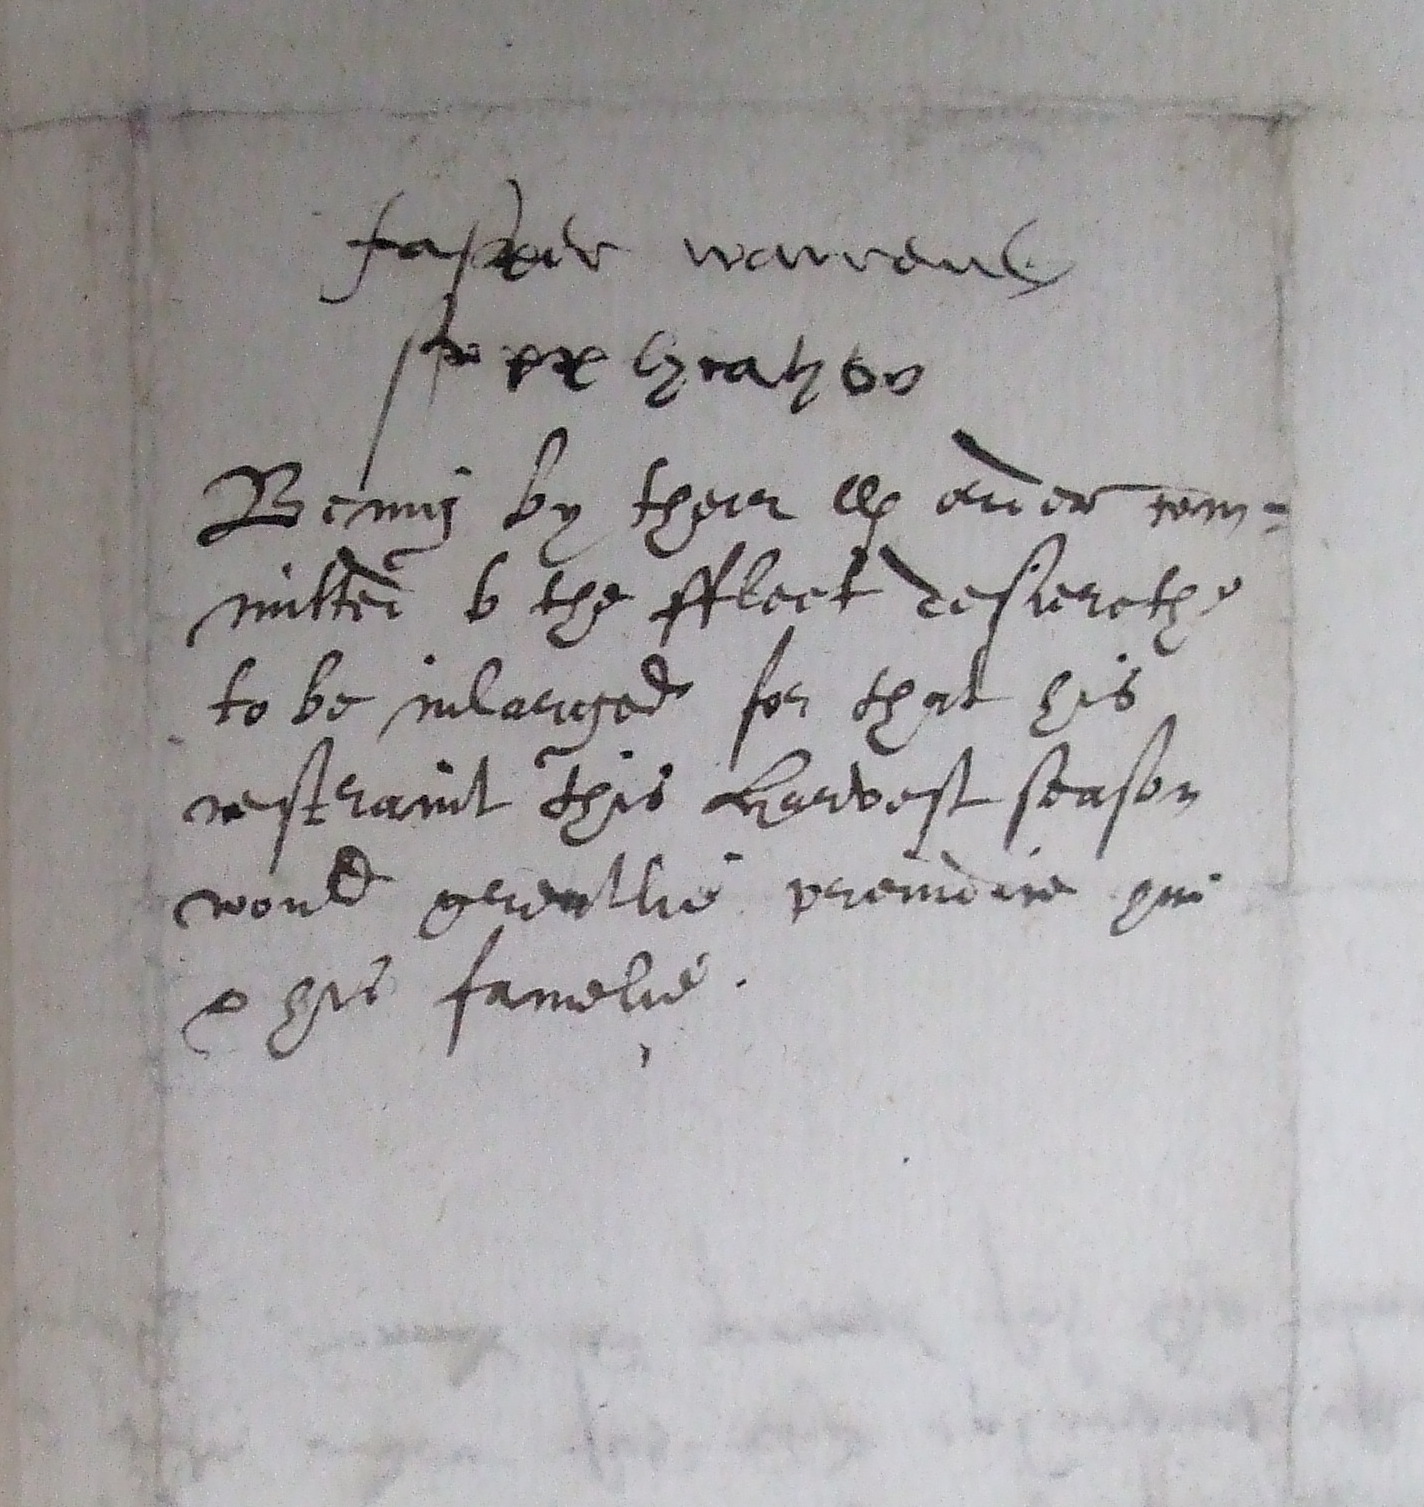 Jasper warrens
Being by their llp order com=
mitted to the ffleet desierethe
to be inlarged for that his
restraint this harvest season
would greatlie preiudice him
& his famelie.